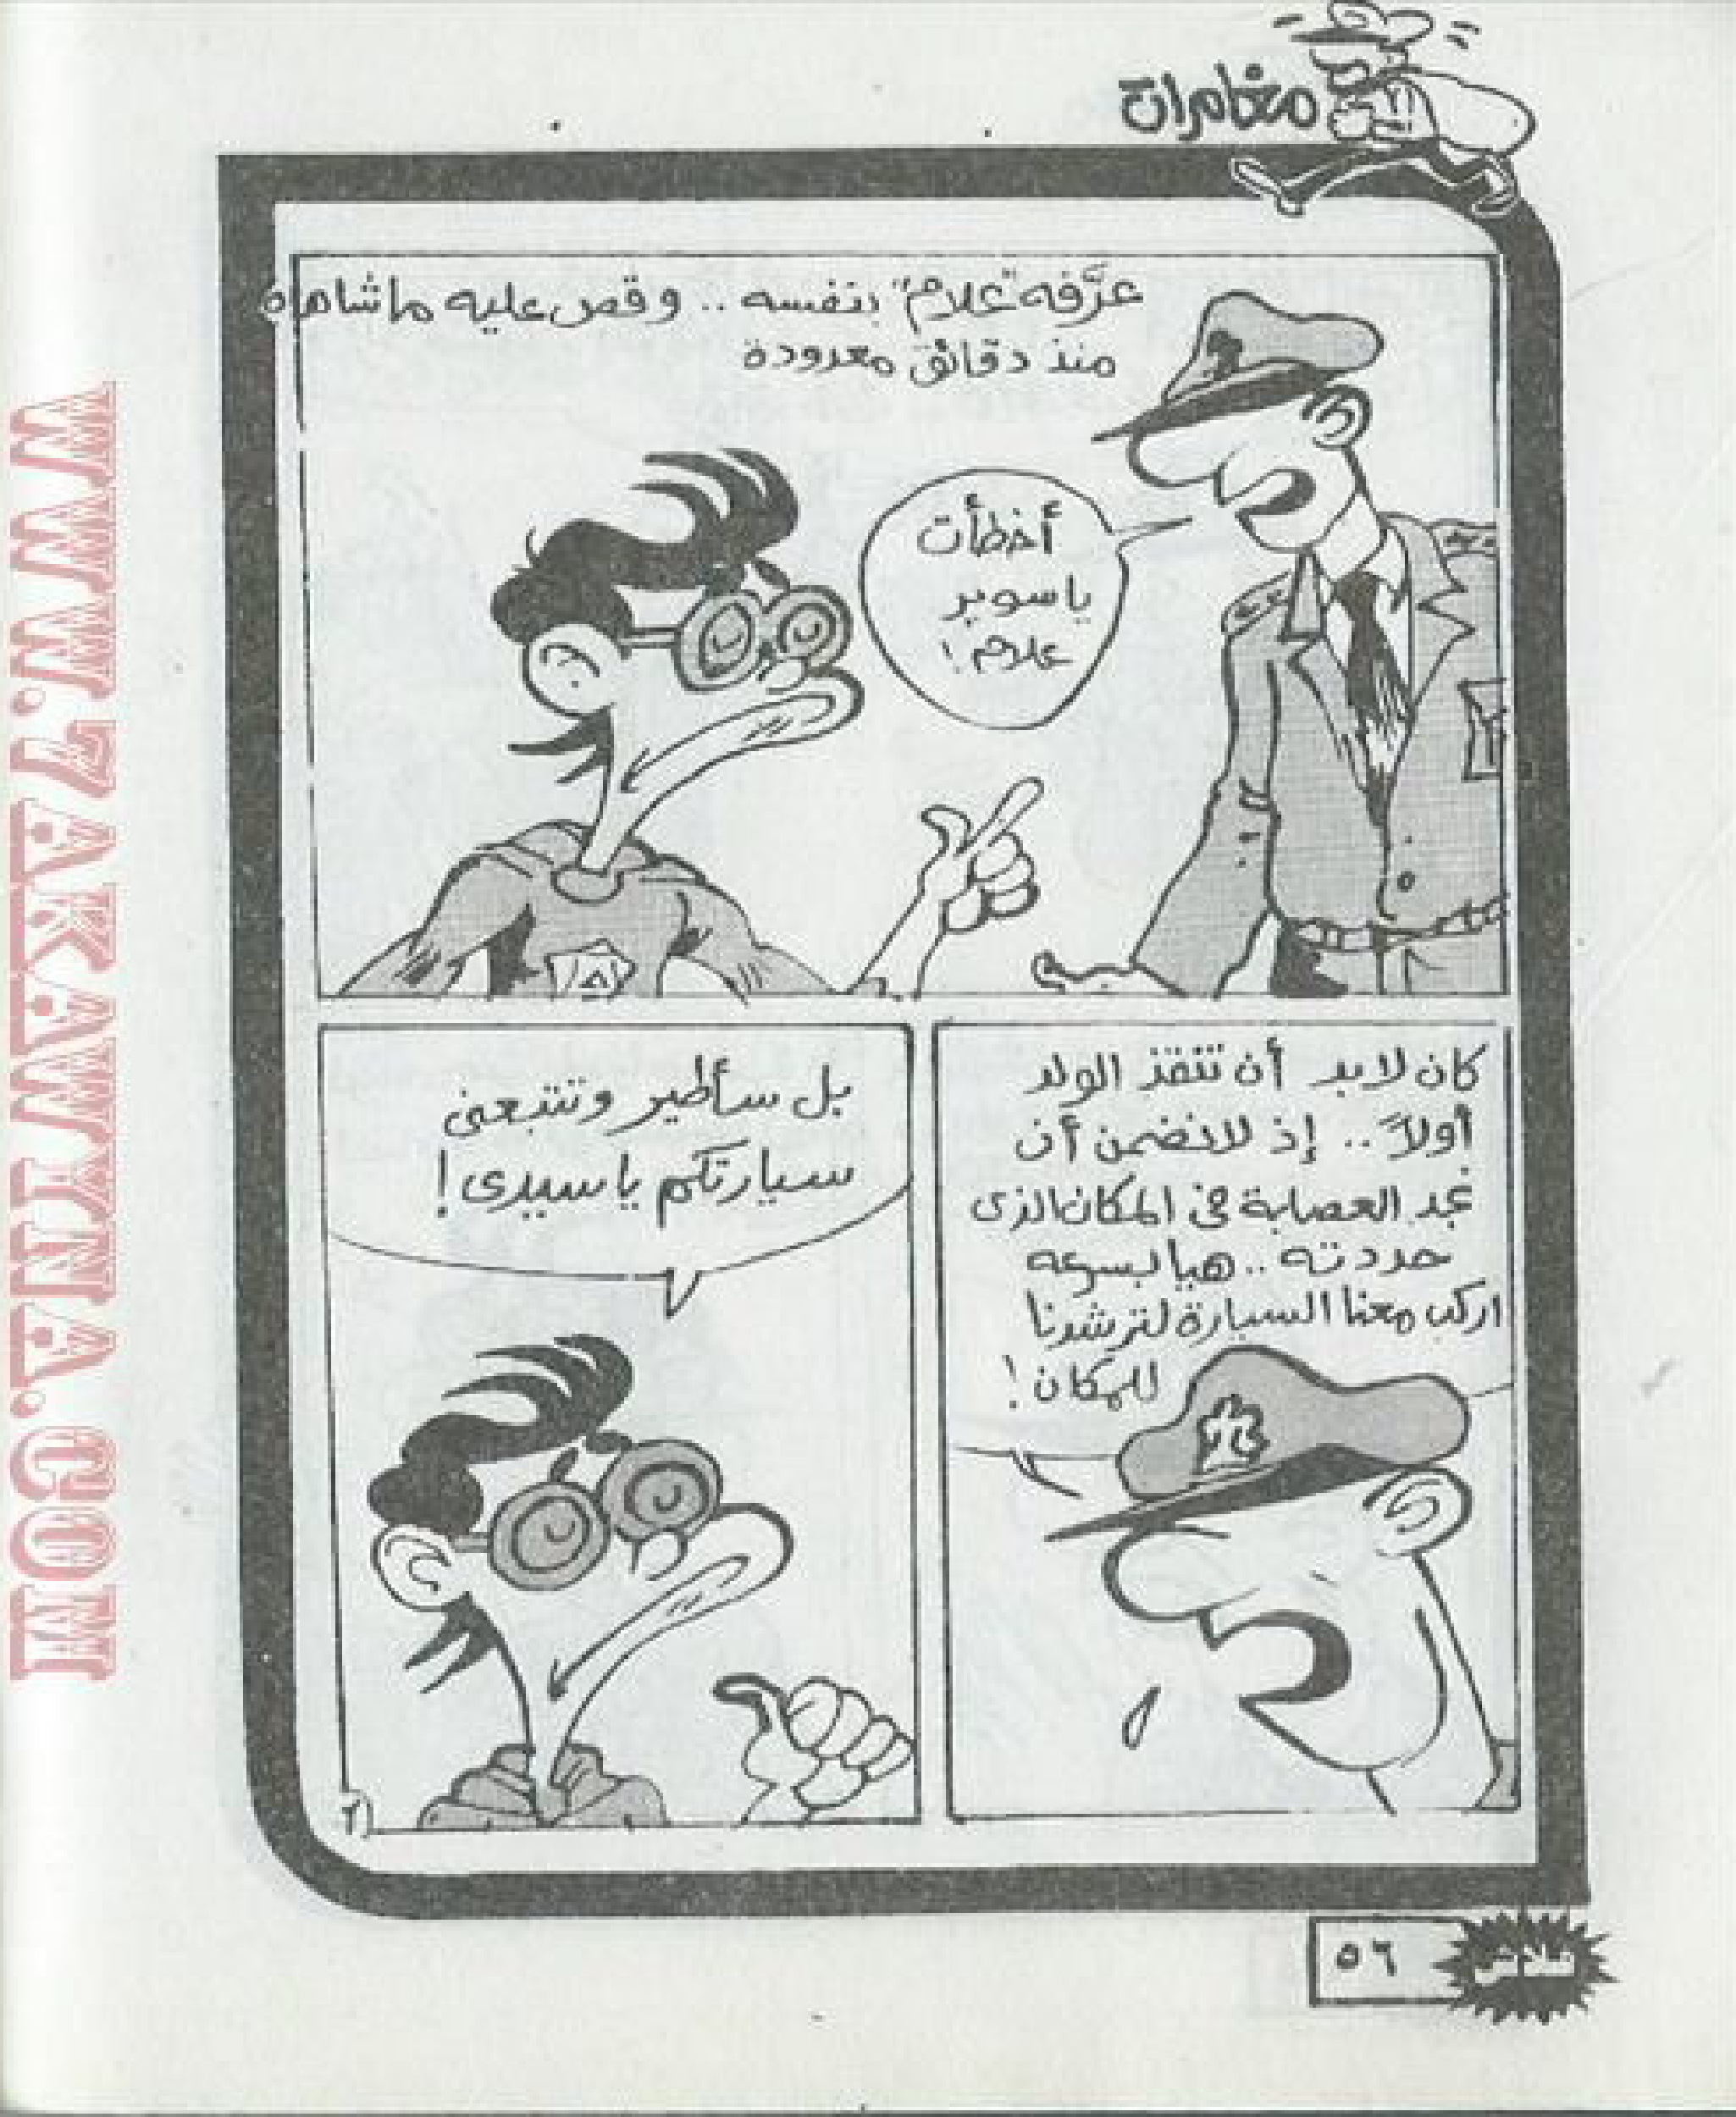 مغامرات
عرَّفه "علام" بنفسه .. وقص عليه ما شاهده
منذ دقائق معدودة
أخطأت
يا سوبر
علام !
كان لابد أن تنقذ الولد
أولاً .. إذ لا نضمن أن
نجد العصابة في المكان الذى
حددته .. هيا بسرعه
اركب معنا السيارة لترشدنا
للمكان !
بل سأطير وتتبعنى
سيارتكم يا سيدى !
٥٦
فلاش
WWW.7AKAWITNA.COM